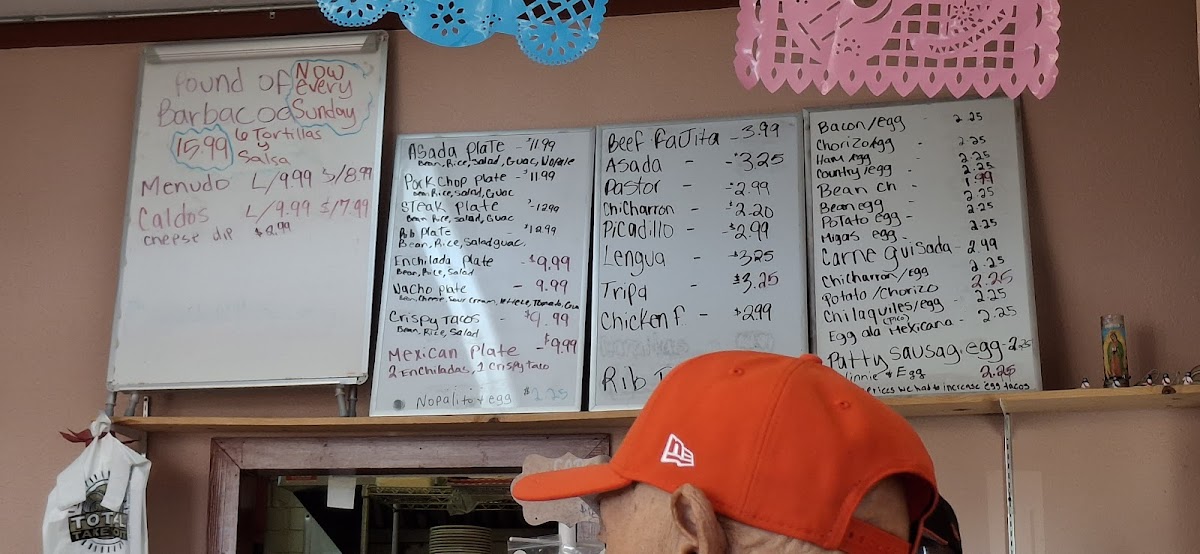 Pound of
Now every Sunday
Barbacoa
15.99
6 Tortillas
y
Salsa
Menudo L/9.99 S/8.99
Caldos L/9.99 S/7.99
Cheese dip $2.99
Asada Plate - $11.99
Bean, Rice, Salad, Guac, Nopale
Pork Chop Plate - $11.99
Bean, Rice, Salad, Guac
Steak Plate - $12.99
Bean, Rice, Salad, Guac
Rib Plate - $12.99
Bean, Rice, Salad guac.
Enchilada Plate - $9.99
Bean, Rice, Salad
Nacho plate - 9.99
Bean, Cheese, Sour Cream, Tomato, Guac
Crispy Tacos - $9.99
Bean, Rice, Salad
Mexican Plate - $9.99
2 Enchiladas, 1 Crispy Taco
Nopalito + egg $2.25
Beef Fajita - 3.99
Asada - - $3.25
Pastor - - 2.99
Chicharron - $2.20
Picadillo - - $2.99
Lengua - $325
Tripa - $3.25
Chicken F. - $299
Rib
Bacon/egg - 2.25
Chorizo/egg - 2.25
Ham/egg - 2.25
Country/egg - 2.25
Bean Ch - 1.99
Bean egg - 2.25
Potato egg - 2.25
Migas egg - 2.25
Carne guisada - 2.99
Chicharron/egg 2.25
Potato/Chorizo 2.25
Chilaquiles/egg - 2.25
Egg ala Mexicana (Pico) - 2.25
Patty sausag. egg - 2.25
innie + Egg 2.25
prices we had to increase egg tacos
TOTAL
TAKE OUT
NE